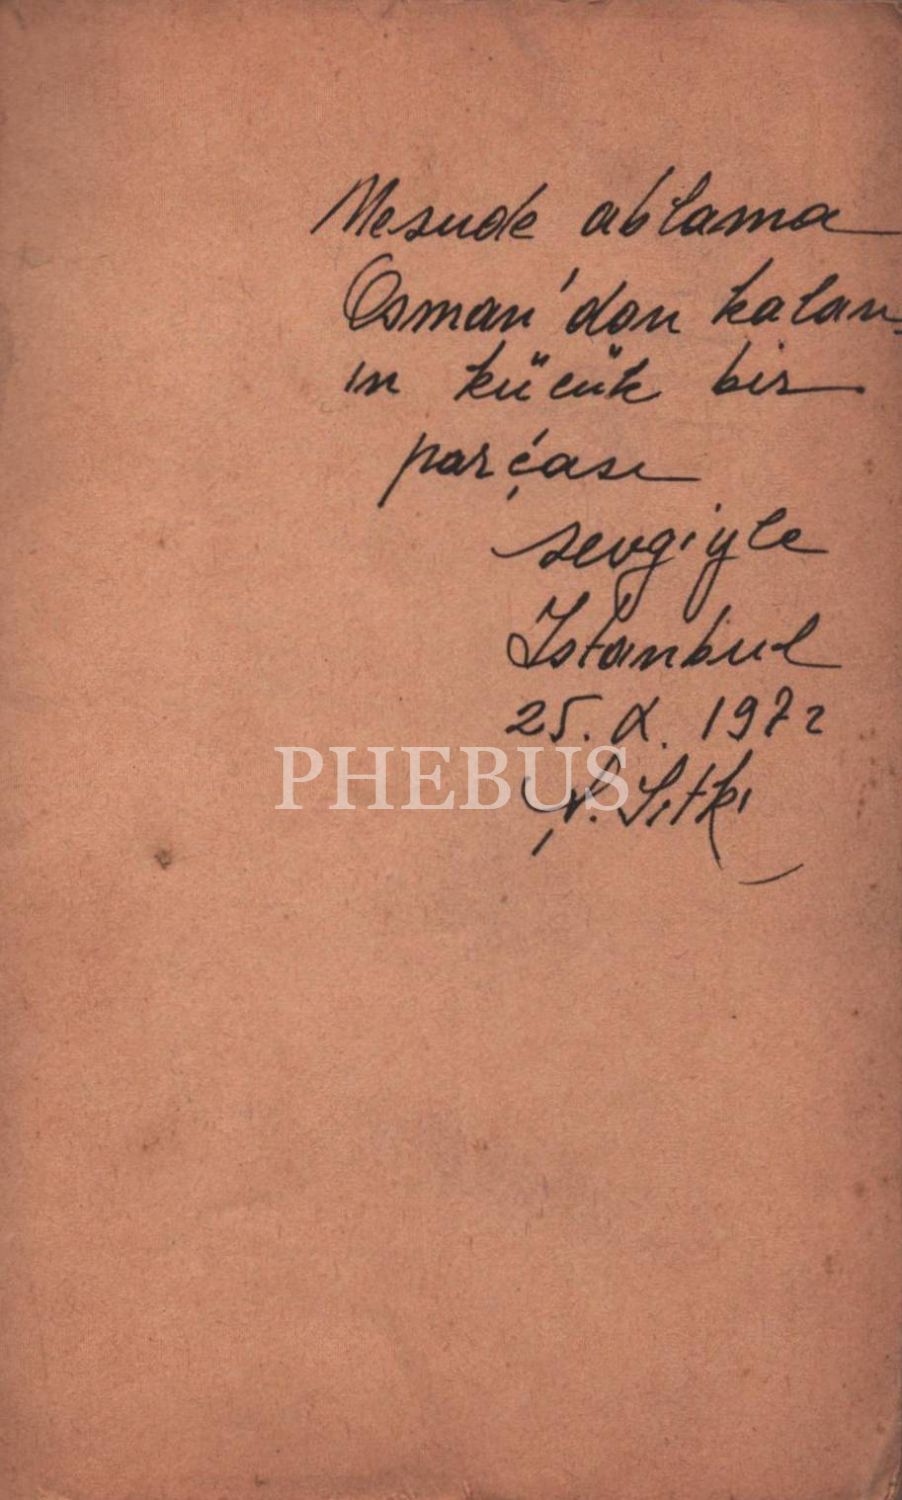 Mesude ablama
Osman'dan kalan-
ın kücük bir
parçası
sevgiyle
İstanbul
25. X. 1972
PHEBUS
Ş. Sıtkı